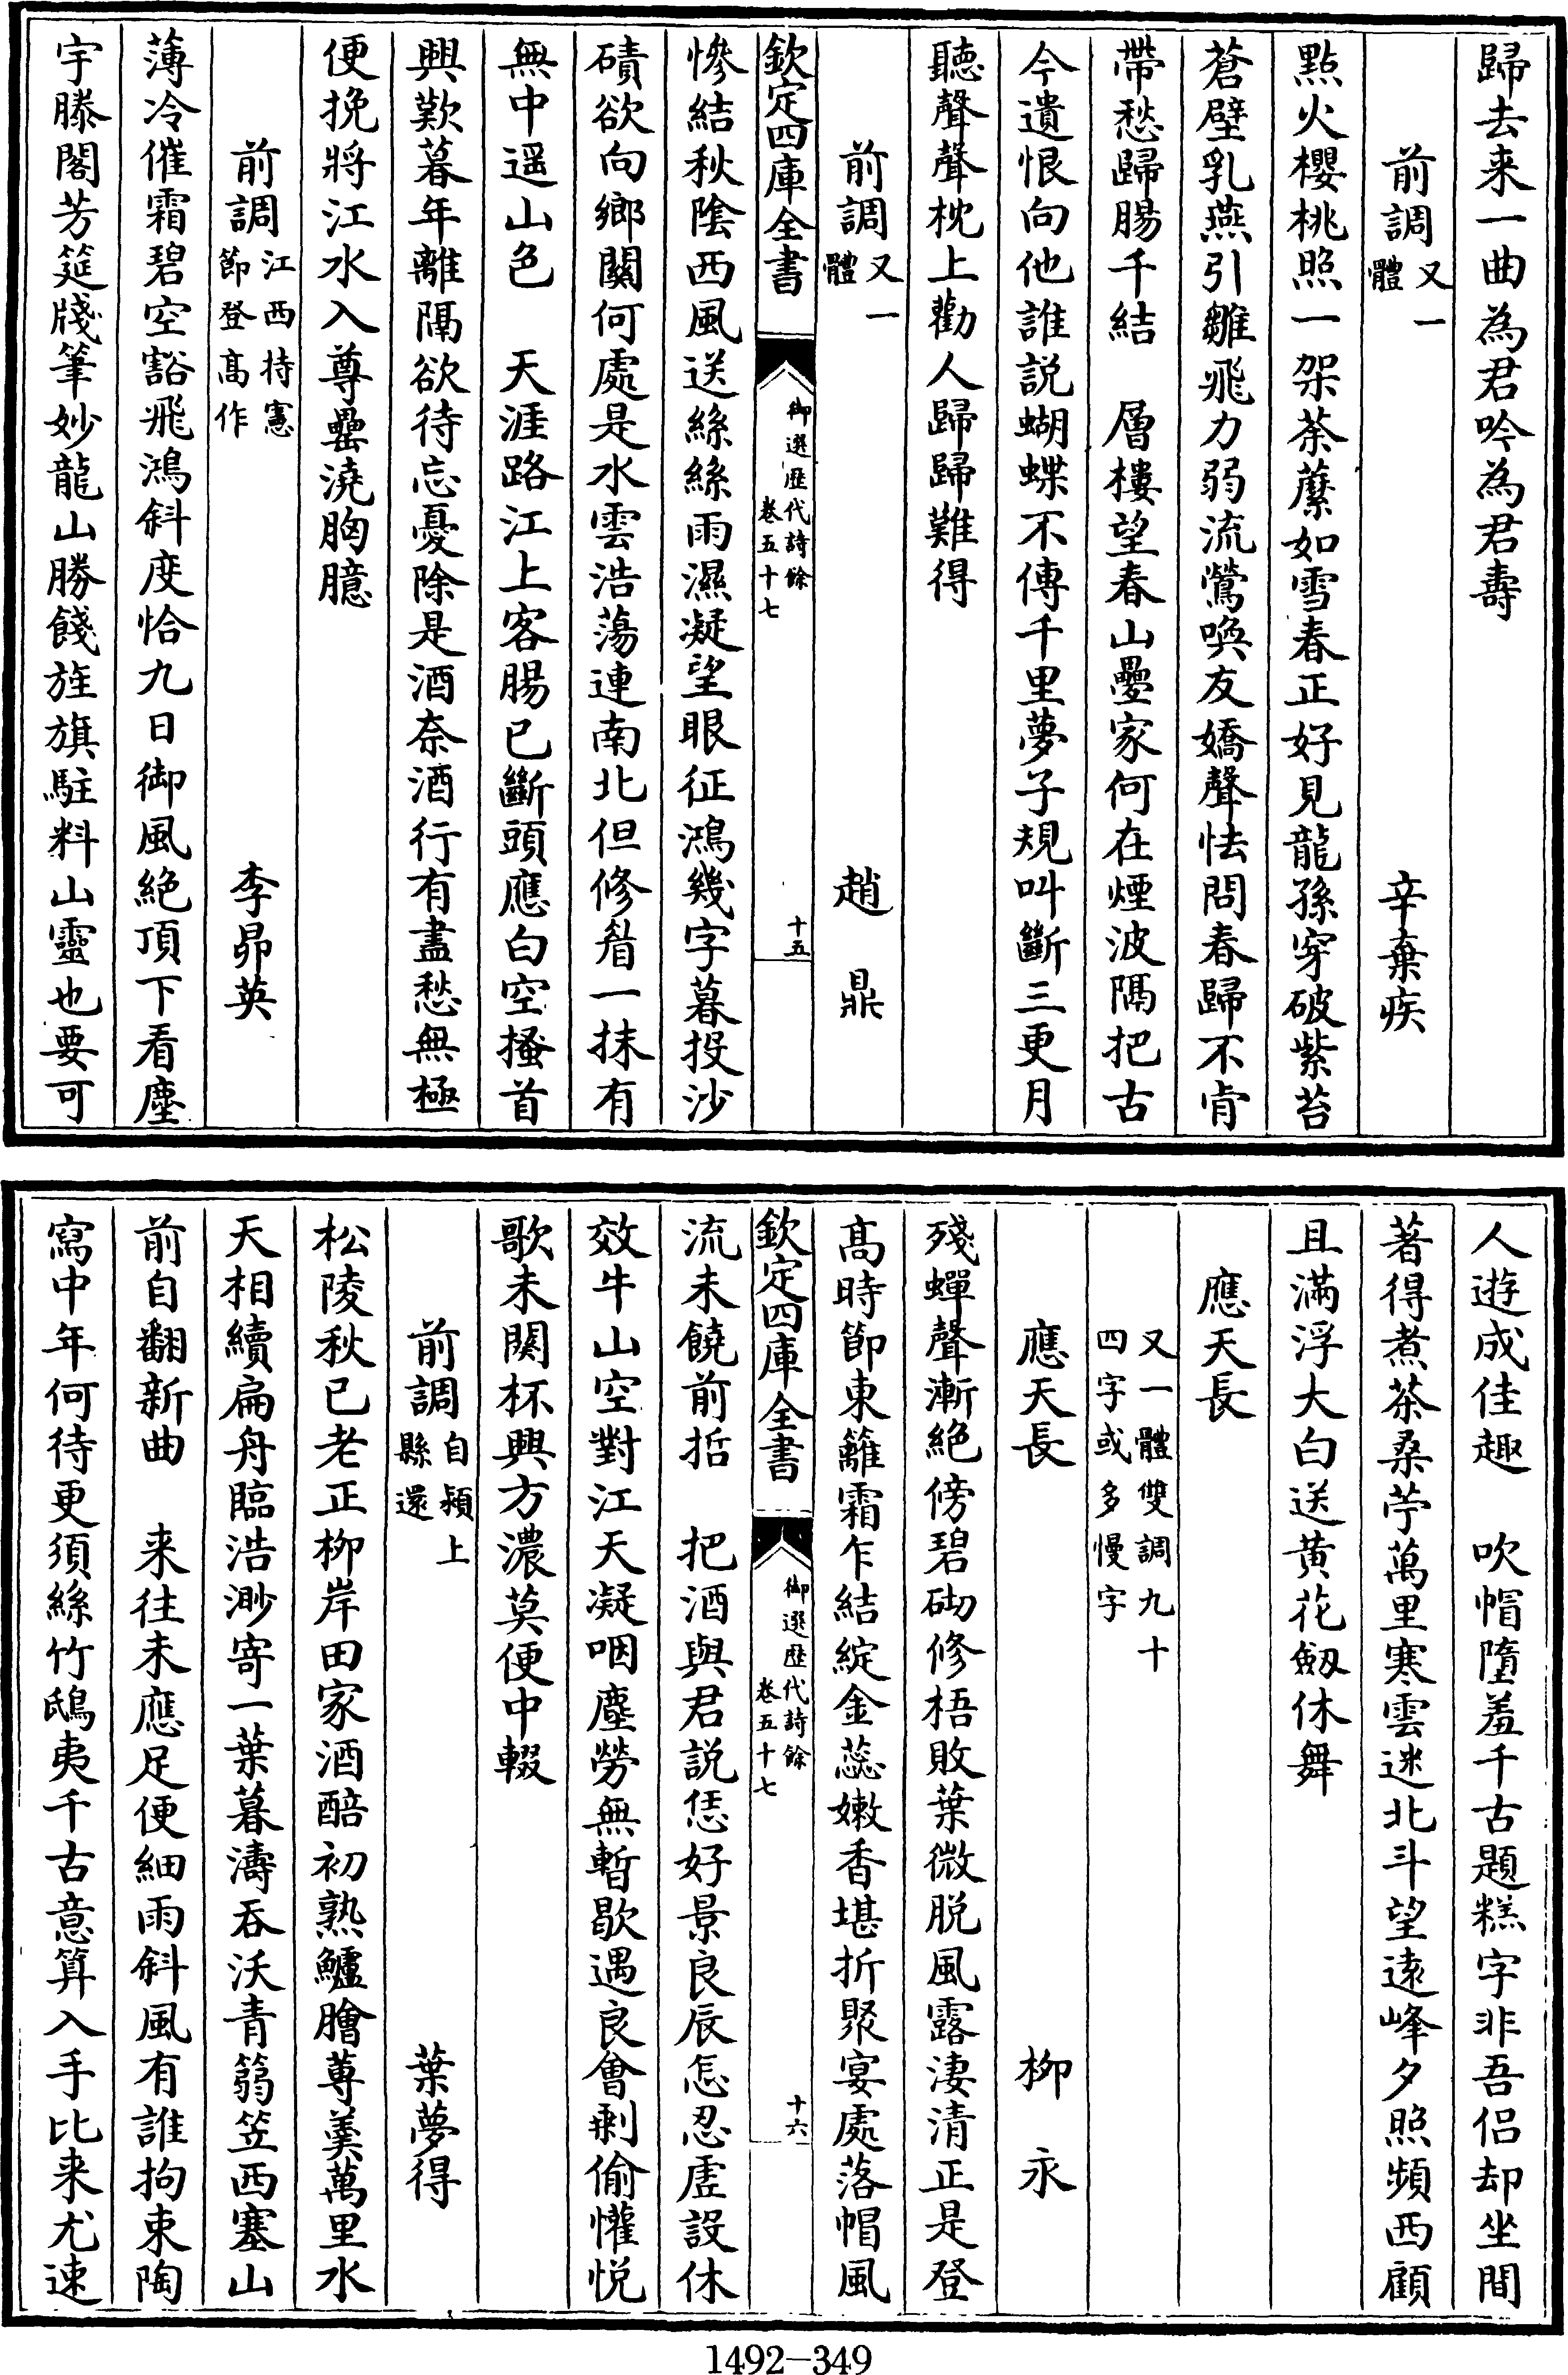 歸去来一曲為君吟為君壽
前調又一體　辛棄疾
點火櫻桃照一架荼䕷如雪春正好見龍孫穿破紫苔
蒼壁乳燕引雛飛力弱流鶯喚友嬌聲怯問春歸不肯
帶愁歸腸千結　層樓望春山疊家何在煙波隔把古
今遺恨向他誰説蝴蝶不傳千里夢子規叫斷三更月
聽聲聲枕上勸人歸歸難得
前調又一體　趙鼎
欽定四庫全書　御選歷代詩餘卷五十七　十五
慘結秋陰西風送絲絲雨濕凝望眼征鴻幾字暮投沙
磧欲向鄉關何處是水雲浩蕩連南北但修眉一抹有
無中遥山色　天涯路江上客腸已斷頭應白空搔首
興歎暮年離隔欲待忘憂除是酒奈酒行有盡愁無極
便挽將江水入尊罍澆胸臆
前調江西持憲節登高作　李昴英
薄冷催霜碧空豁飛鴻斜度恰九日御風絶頂下看塵
宇滕閣芳筵牋筆妙龍山勝餞旌旗駐料山靈也要可
人遊成佳趣　吹帽墮羞千古題糕字非吾侣却坐間
著得煮茶桑苧萬里寒雲迷北斗望逺峰夕照頻西顧
且滿浮大白送黄花劔休舞
應天長
又一體雙調九十四字或多慢字
應天長　柳永
殘蟬聲漸絶傍碧砌修梧敗葉微脱風露淒清正是登
高時節東籬霜乍結綻金蕊嫩香堪折聚宴處落帽風
欽定四庫全書　御選歷代詩餘卷五十七　十六
流未饒前哲　把酒與君説恁好景良辰怎忍虚設休
效牛山空對江天凝咽塵勞無暫歇遇良會剩偷懽悦
歌未闋杯興方濃莫便中輟
前調自潁上縣還　葉夢得
松陵秋已老正柳岸田家酒醅初熟鱸膾蓴羮萬里水
天相續扁舟臨浩渺寄一葉暮濤吞沃青篛笠西塞山
前自翻新曲　来往未應足便細雨斜風有誰拘束陶
寫中年何待更須絲竹鴟夷千古意算入手比来尤速
1492—349